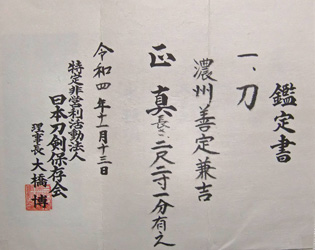 鑑定書
一、刀
濃州善定兼吉
正真 長さ二尺二寸一分有之
令和四年十一月十三日
特定非営利活動法人
日本刀剣保存会
理事長 大橋博